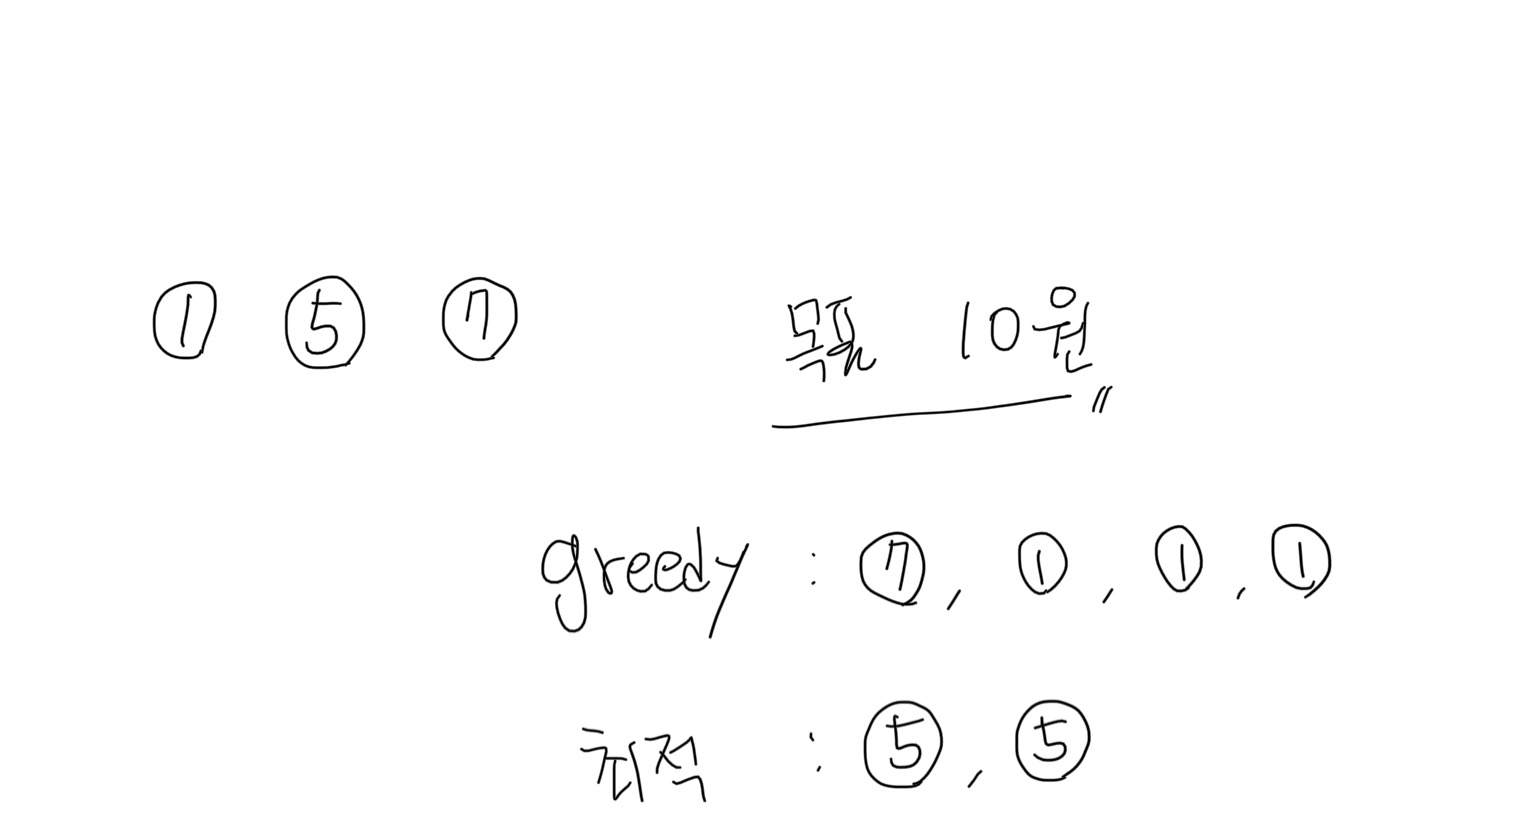 ① ⑤ ⑦ 목표 10원 〃
greedy : ⑦, ①, ①, ①
최적 : ⑤, ⑤